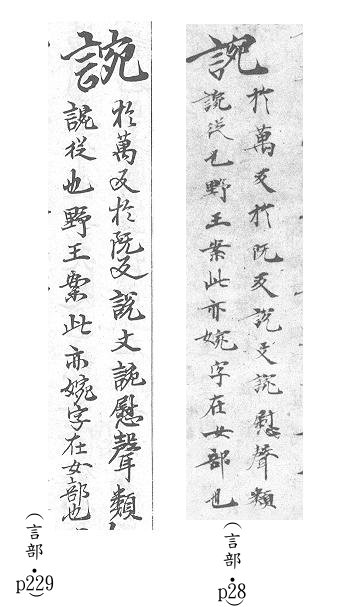 䛷
於萬反於阮反說文䛷慰聲類
䛷從也野王案此亦婉字在女部也
(言部・p28)
䛷
於萬反於阮反說文䛷慰聲類
䛷從也野王案此亦婉字在女部也
(言部・p229)